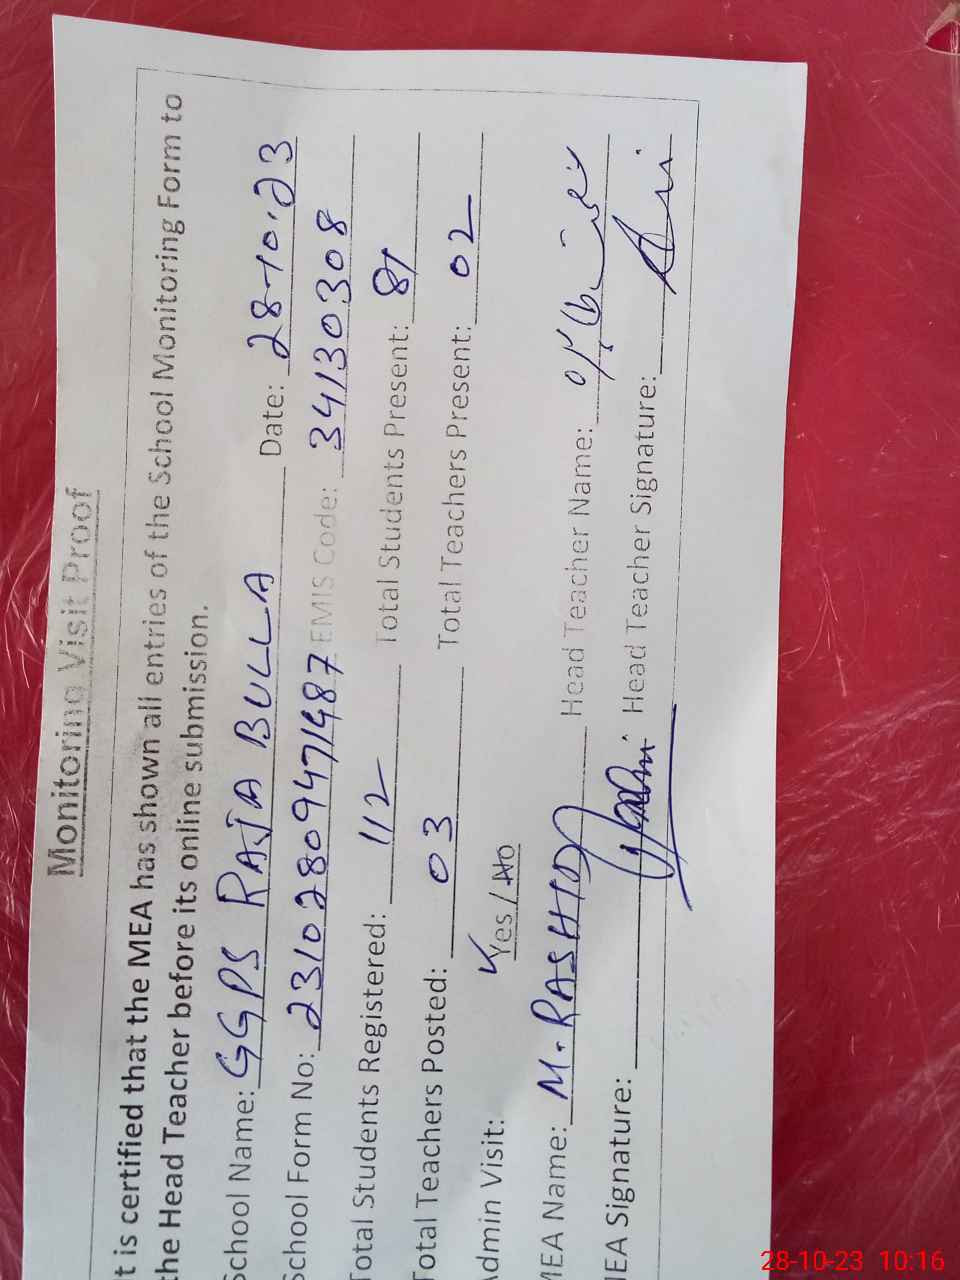 Monitoring Visit Proof
t is certified that the MEA has shown all entries of the School Monitoring Form to
the Head Teacher before its online submission.
School Name: GGPS RAJA BULLA Date: 28-10-23
School Form No: 23102809471487 EMIS Code: 34130308
Total Students Registered: 112 Total Students Present: 81
Total Teachers Posted: 03 Total Teachers Present: 02
Admin Visit: Yes / No
MEA Name: M. RASHID Head Teacher Name:
MEA Signature: Head Teacher Signature:
28-10-23 10:16